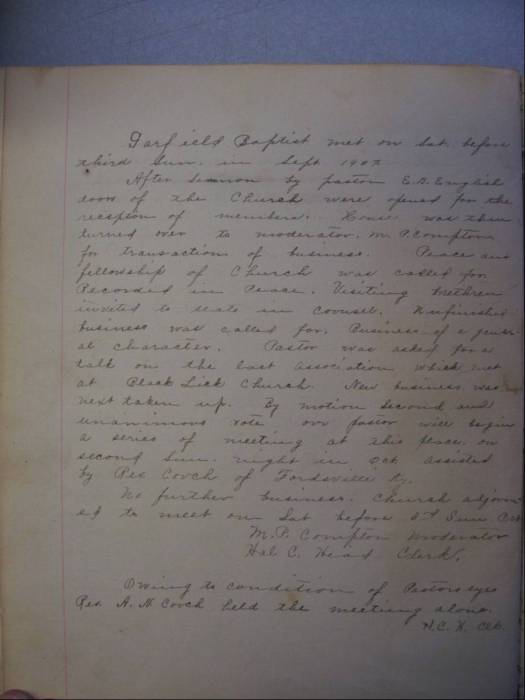 Garfield Baptist met on Sat. before
third Sun. in Sept 1907
After sermon by pastor E.B. English
doors of the Church were opened for the
reception of members. House was then
turned over to moderator, M. P. Compton
for transaction of business. Peace and
fellowship of Church was called for
Recorded in Peace. Visiting brethren
invited to seats in council. Unfinished
business was called for. Business of a gener-
al character. Pastor was asked for a
talk on the last association which met
at Black Lick Church. New business was
next taken up. By motion second and
unanimous vote our pastor will begin
a series of meeting at this place on
second Sun. night in Oct. assisted
by Rev Couch of Fordsville Ky.
No further business. Church adjourn-
ed to meet on Sat before 3rd Sun Oct
M.P. Compton Moderator
Hal C. Head Clerk.
Owing to condition of Pastors eyes
Rev. A. N. Couch held the meeting alone.
H.C. H. Clk.